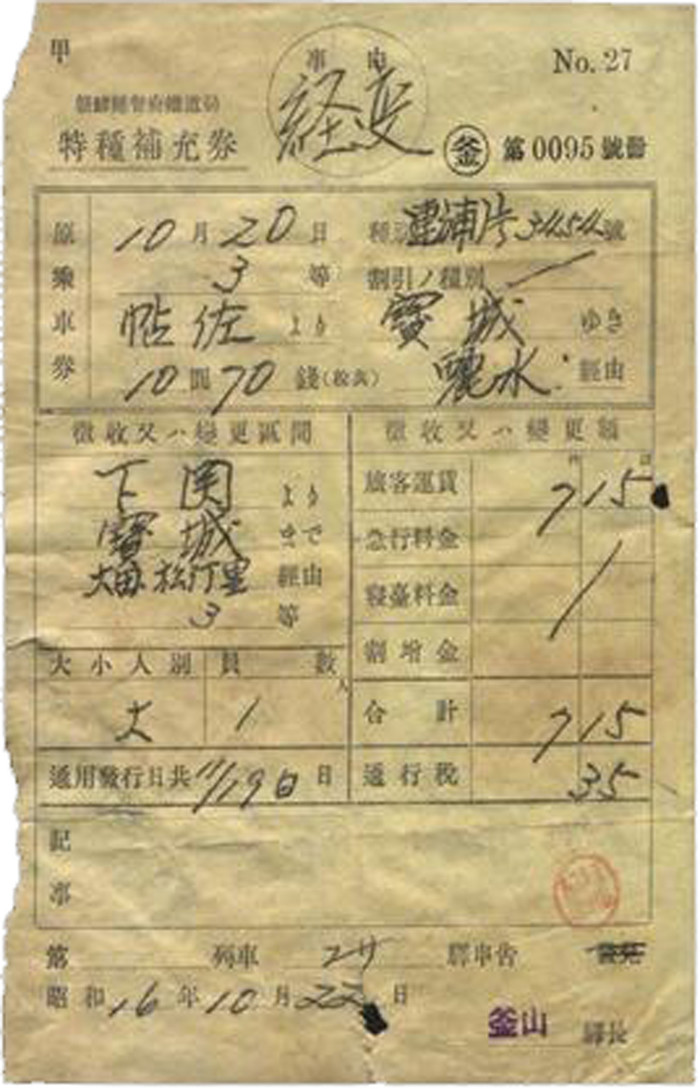 甲
事由
No. 27
朝鮮總督府鐵道局
経変
特種補充券
釜 第0095號
原乘車券
10月20日
3等
割引ノ種別
帖佐より
寶城ゆき
10圓70錢
麗水経由
徵收又ハ變更區間
徵收又ハ變更額
下関より
旅客運賃 7 15
寶城まで
急行料金
大田 松汀里 経由
寢臺料金
3等
割增金
大小人別 員數
人
大 1
合計 7 15
通用發行日共 11/19日 日
通行稅 35
記事
第 列車
昭和16年10月22日
釜山 驛長